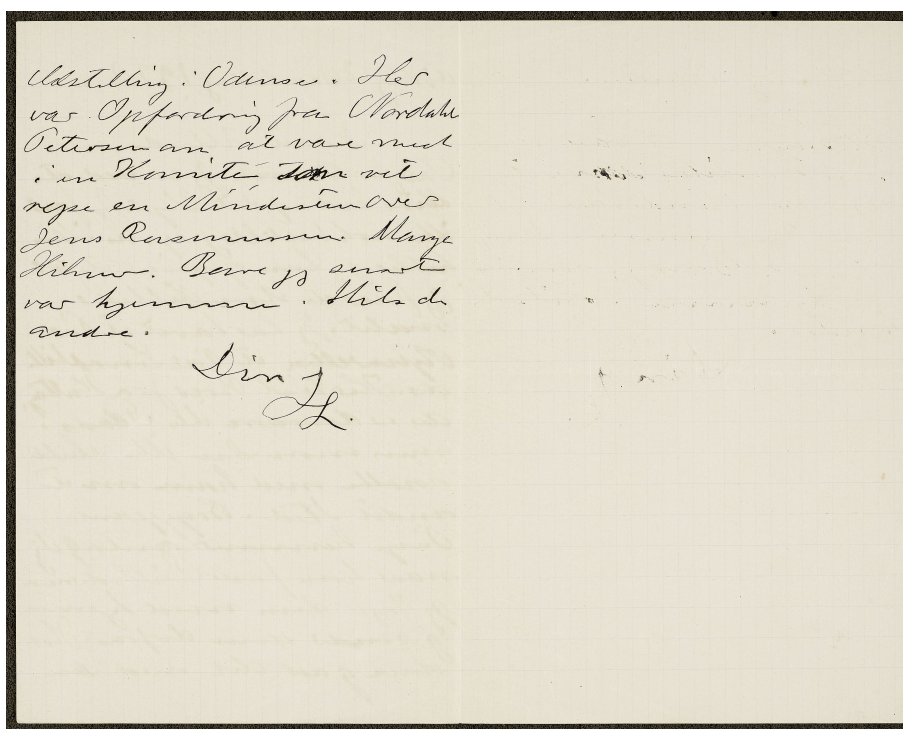 Udstilling i Odense. Her
var Opfordring fra Nordahl
Petersen om at være med
i en Komité som vil
rejse en Mindesten over
Jens Rasmussen. Mange
Hilsner. Bare jeg snart
var hjemme. Hils de
andre.
Din JL.